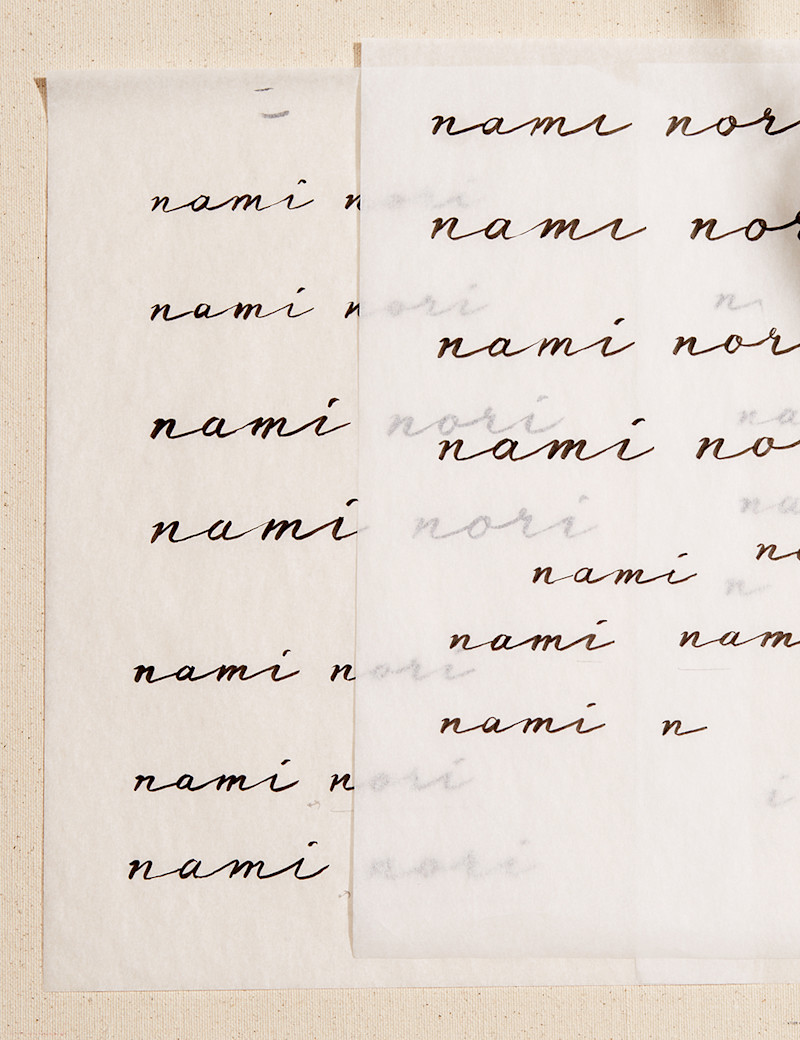 nami nori
nami nori
nami nori
nami nori
nami nori
nami nori
nami nori
nami nor
nami no
nami nor
nami no
n
na
na
n
nami
na
nami nam
nami n
i